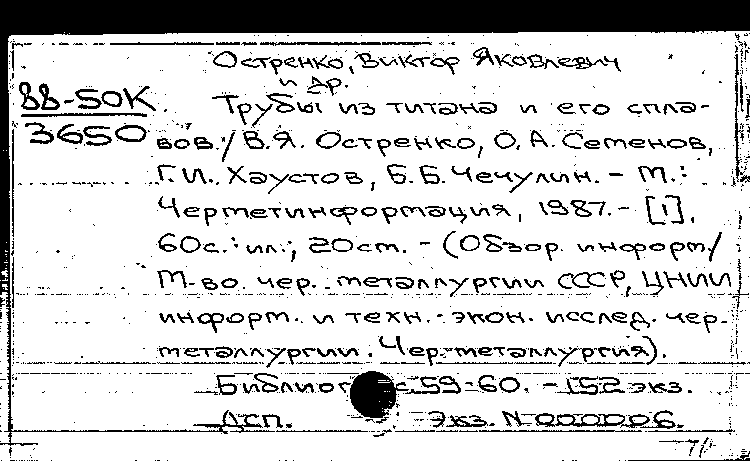 Остренко, Виктор Яковлевич
и др.
88-50К
3650
Трубы из титана и его спла-
вов / В.Я. Остренко, О.А. Семенов,
Г.И. Хаустов, Б.Б. Чечулин. - М.:
Черметинформация, 1987. - [1],
60с.: ил.; 20см. - (Обзор. информ./
М-во. чер. металлургии СССР, ЦНИИ
информ. и техн.-экон. исслед. чер.
металлургии. Чер. металлургия).
с. 59-60. - 152 экз.
Дсп. Экз. N 000006.